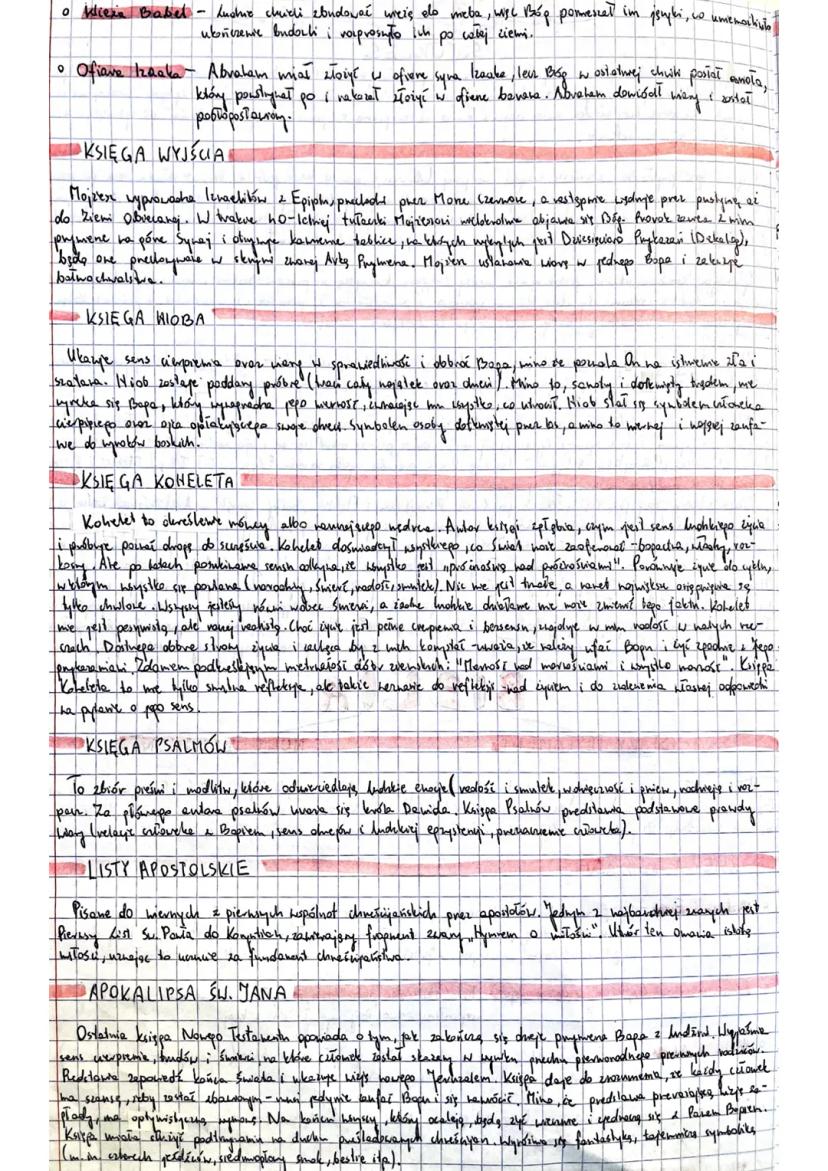 o Wieża Babel – Ludzie chcieli zbudować wieżę do nieba, więc Bóg pomieszał im języki, co uniemożliwiło
ukończenie budowli i rozproszyło ich po całej ziemi.
o Ofiara Izaaka – Abraham miał złożyć w ofierze syna Izaaka, lecz Bóg w ostatniej chwili posłał anioła,
który powstrzymał go i nakazał złożyć w ofierze barana. Abraham dowiódł wiary i został
pobłogosławiony.
KSIĘGA WYJŚCIA
Mojżesz wyprowadza Izraelitów z Egiptu, przechodzi przez Morze Czerwone, a następnie wędruje przez pustynię aż
do Ziemi Obiecanej. W trakcie 40-letniej tułaczki Mojżeszowi wielokrotnie objawia się Bóg. Prorok zawiera z nim
przymierze na górze Synaj i otrzymuje kamienne tablice, na których wyrytych jest Dziesięcioro Przykazań (Dekalog),
będą one przechowywane w skrzyni zwanej Arką Przymierza. Mojżesz ustanawia wiarę w jednego Boga i zakazuje
bałwochwalstwa.
KSIĘGA HIOBA
Ukazuje sens cierpienia oraz wiarę w sprawiedliwość i dobroć Boga, mimo że pozwala On na istnienie zła i
szatana. Hiob zostaje poddany próbie (traci cały majątek oraz dzieci). Mimo to, samotny i dotknięty trądem, nie
wyrzeka się Boga, który wynagradza jego wierność, zwracając mu wszystko, co utracił. Hiob stał się symbolem człowieka
cierpiącego oraz ojca opłakującego swoje dzieci. Symbolem osoby dotkniętej przez los, a mimo to wiernej i mającej zaufa-
nie do wyroków boskich.
KSIĘGA KOHELETA
Kohelet to określenie mówcy albo nauczającego mędrca. Autor księgi zgłębia, czym jest sens ludzkiego życia
i próbuje poznać drogę do szczęścia. Kohelet doświadczył wszystkiego, co świat może zaoferować – bogactwa, władzy, roz-
koszy. Ale po latach poszukiwania sensu odkrywa, że wszystko jest „próżnością nad próżnościami". Porównuje życie do cyklu,
w którym wszystko się powtarza (narodziny, śmierć, radość, smutek). Nic nie jest trwałe, a nawet największe osiągnięcia są
tylko chwilowe. Wszyscy jesteśmy równi wobec śmierci, a żadne ludzkie działanie nie może zmienić tego faktu. Kohelet
nie jest pesymistą, ale raczej realistą. Choć życie jest pełne cierpienia i bezsensu, znajduje w nim radość w małych rze-
czach. Dostrzega dobre strony życia i zachęca by z nich korzystać – uważa, że należy ufać Bogu i żyć zgodnie z Jego
przykazaniami. Zdaniem podkreślającym nietrwałość dóbr ziemskich: "Marność nad marnościami i wszystko marność". Księga
Koheleta to nie tylko smutna refleksja, ale także wezwanie do refleksji nad życiem i do znalezienia własnej odpowiedzi
na pytanie o jego sens.
KSIĘGA PSALMÓW
To zbiór pieśni i modlitw, które odzwierciedlają ludzkie emocje (radość i smutek, wdzięczność i gniew, nadzieję i roz-
pacz. Za głównego autora psalmów uważa się króla Dawida. Księga Psalmów przedstawia podstawowe prawdy
wiary (relacje człowieka z Bogiem, sens obrzędów i ludzkiej egzystencji, przeznaczenie człowieka).
LISTY APOSTOLSKIE
Pisane do wiernych z pierwszych wspólnot chrześcijańskich przez apostołów. Jednym z najbardziej znanych jest
Pierwszy List św. Pawła do Koryntian, zawierający fragment zwany „Hymnem o miłości". Utwór ten omawia istotę
miłości, uznając to uczucie za fundament chrześcijaństwa.
APOKALIPSA ŚW. JANA
Ostatnia księga Nowego Testamentu opowiada o tym, jak zakończą się dzieje przymierza Boga z ludźmi. Wyjaśnia
sens cierpienia, trudów i śmierci, na które człowiek został skazany w wyniku grzechu pierworodnego pierwszych rodziców.
Przedstawia zapowiedź końca świata i ukazuje wizję nowego Jeruzalem. Księga daje do zrozumienia, że każdy człowiek
ma szansę, żeby zostać zbawionym – musi jedynie zaufać Bogu i się nawrócić. Mimo, że przedstawia przerażającą wizję za-
głady, ma optymistyczną wymowę. Na końcu wszyscy, którzy ocaleją, będą żyć wiecznie i zjednoczą się z Panem Bogiem.
Księga miała służyć podtrzymaniu na duchu prześladowanych chrześcijan. Wyróżnia się fantastyką, tajemniczą symboliką
(m.in. czterech jeźdźców, siedmiogłowy smok, bestie itp.).